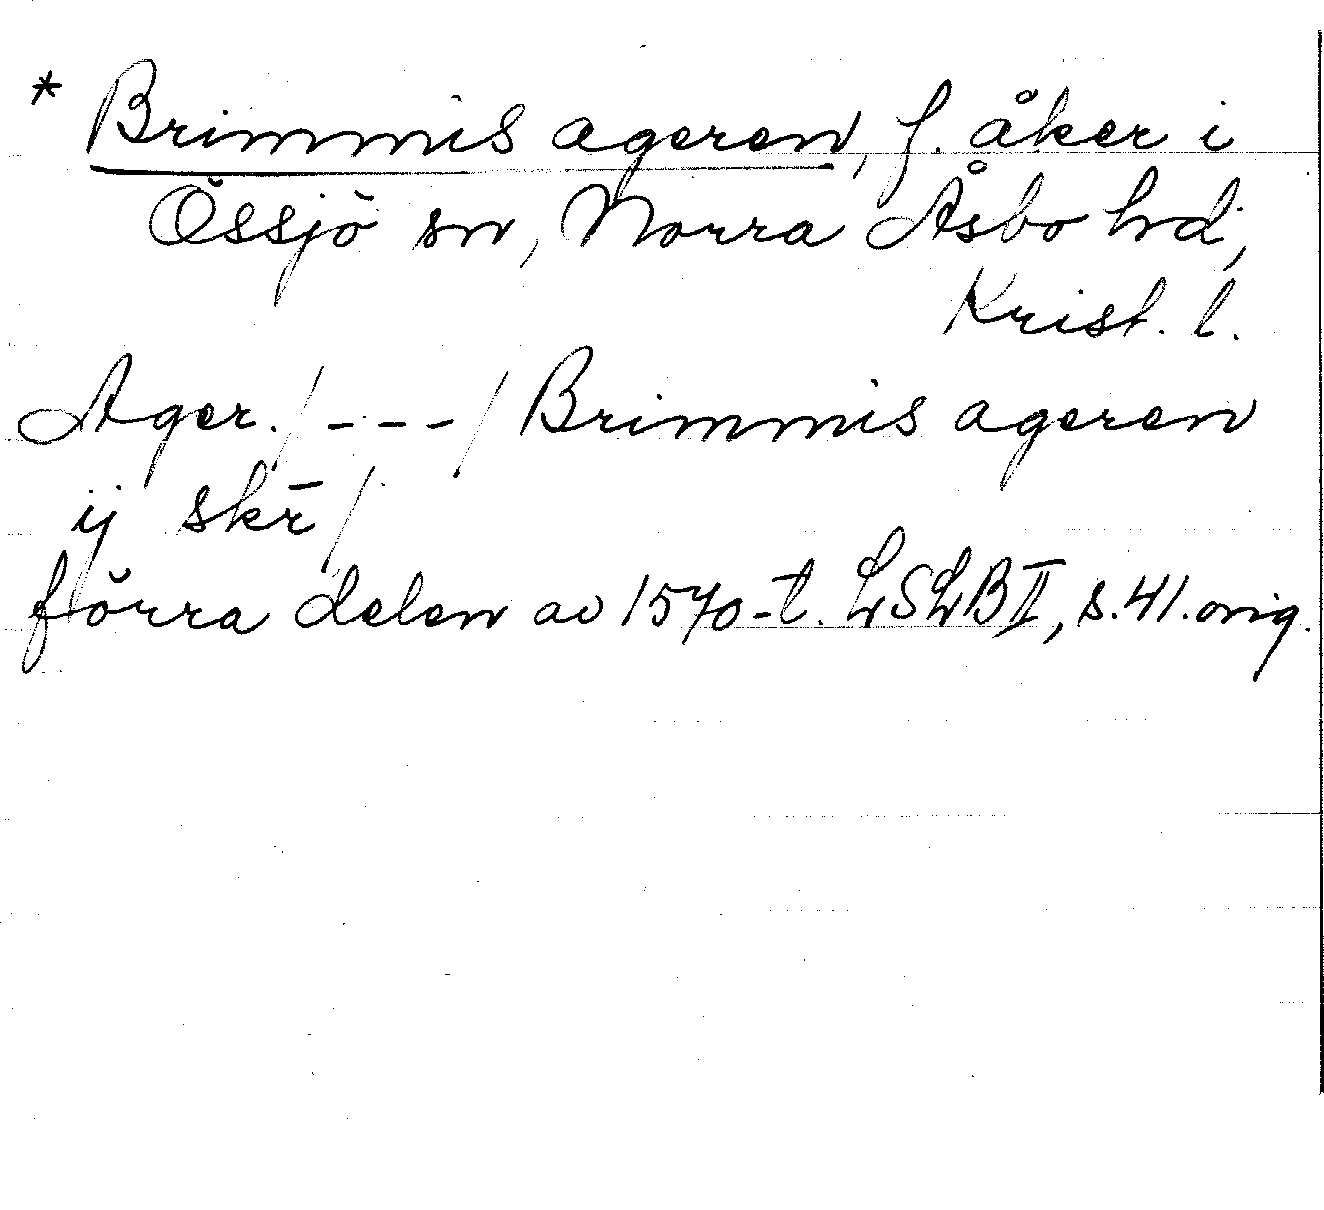 * Brimmis ageren, f. åker i
Össjö sn, Norra Åsbo hd,
Krist. l.
Ager. / - - - / Brimmis ageren
ij skr̄ /
förra delen av 1570-t. LSLB II, s. 41. orig.